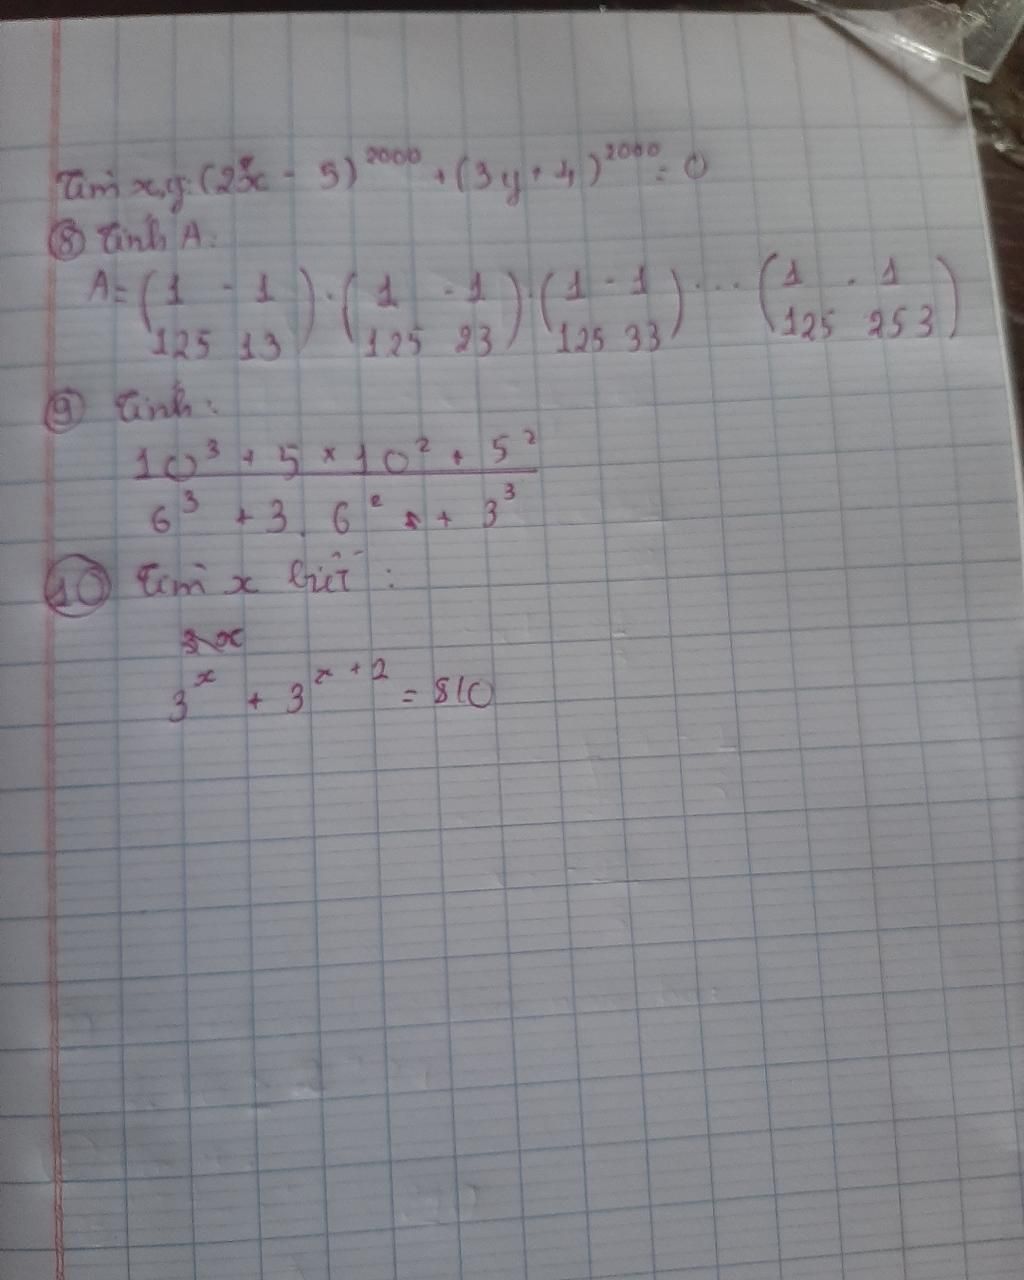 Tìm x,y: (2x - 5)^2000 + (3y + 4)^2000 = 0
⑧ Tính A:
A = (1/125 - 1/13) . (1/125 - 1/23) . (1/125 - 1/33) ... (1/125 - 1/253)
⑨ Tính:
10³ + 5 × 10² + 5²
6³ + 3 . 6² + 3³
⑩ Tìm x biết :
3^x + 3^(x + 2) = 810